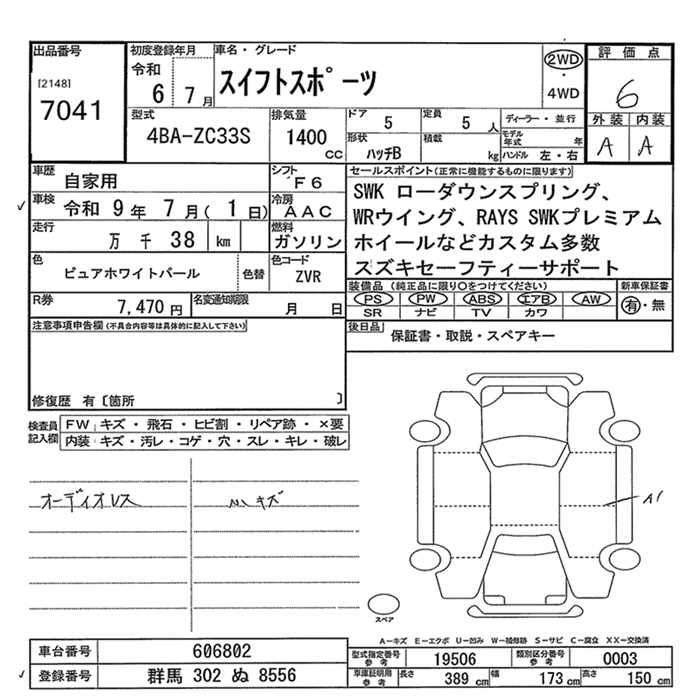 出品番号
[2148]
7041
初度登録年月
令和
6 7月
車名・グレード
スイフトスポーツ
2WD
・
4WD
評価点
6
外装 内装
A A
型式
4BA-ZC33S
排気量
1400
CC
ドア
5
定員
5 人
形状
ハッチB
積載
kg
ディーラー・並行
モデル年式 年
ハンドル 左・右
車歴
自家用
シフト
F6
車検
令和 9年 7月( 1日)
冷房
AAC
走行
万 千 38 km
燃料
ガソリン
色
ピュアホワイトパール
色替
色コード
ZVR
R券
7,470円
名変通知期限
月 日
セールスポイント(正常に機能するものに限ります)
SWK ローダウンスプリング、
WRウイング、RAYS SWKプレミアム
ホイールなどカスタム多数
スズキセーフティーサポート
装備品 (純正品に限り○をつけてください)
PS PW ABS エアB AW
SR ナビ TV カワ
新車保証書
有・無
後日品
保証書・取説・スペアキー
注意事項申告欄(不具合内容等は具体的に記入して下さい)
修復歴 有〔箇所 〕
検査員記入欄
FW キズ・飛石・ヒビ割・リペア跡・×要
内装 キズ・汚レ・コゲ・穴・スレ・キレ・破レ
オーディオレス
小キズ
A1
スペア
A-キズ E-エクボ U-凹み W-補修跡 S-サビ C-腐食 XX-交換済
車台番号
606802
登録番号
群馬 302 ぬ 8556
型式指定番号参考
19506
類別区分番号参考
0003
車庫証明用参考
長さ 389 cm
幅 173 cm
高さ 150 cm